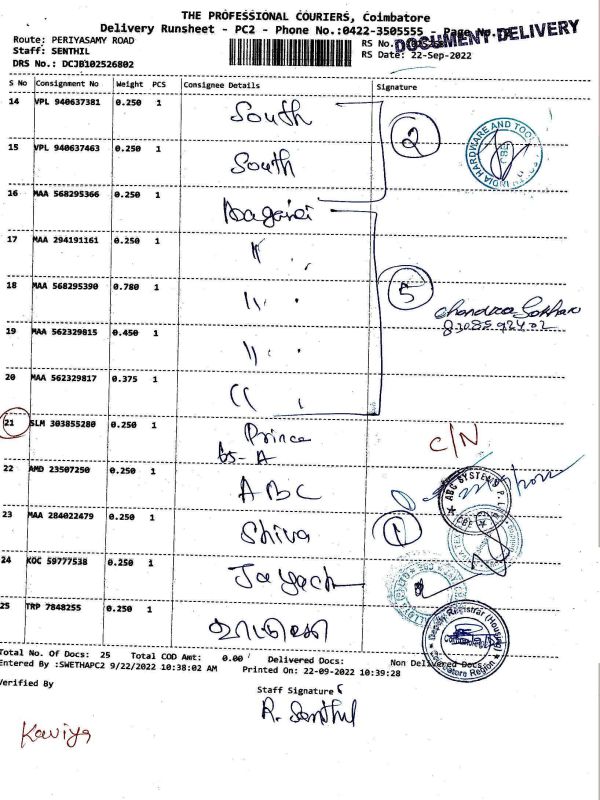 THE PROFESSIONAL COURIERS, Coimbatore
Delivery Runsheet - PC2 - Phone No.:0422-3505555 - Page No.
DOCUMENT DELIVERY
Route: PERIYASAMY ROAD
RS No.
Staff: SENTHIL
RS Date: 22-Sep-2022
DRS No.: DCJB102526802
S No Consignment No Weight PCS Consignee Details Signature
14 VPL 940637381 0.250 1 South
2
15 VPL 940637463 0.250 1 South
16 MAA 568295366 0.250 1
17 MAA 294191161 0.250 1 "
18 MAA 568295390 0.780 1 "
5
19 MAA 562329815 0.450 1 "
8308592402
20 MAA 562329817 0.375 1 "
21 SLM 303855280 0.250 1 Prince
C/N
65-A
22 AMD 23507250 0.250 1 ABC
ABC SYSTEMS P. L
CBE
23 MAA 284022479 0.250 1 Shiva
1
24 KOC 59777538 0.250 1
25 TRP 7848255 0.250 1
Deputy Registrar (Housing)
Coimbatore Region
Total No. Of Docs: 25 Total COD Amt: 0.00 Delivered Docs: Non Delivered Docs
Entered By :SWETHAPC2 9/22/2022 10:38:02 AM Printed On: 22-09-2022 10:39:28
Verified By
Staff Signature
R. Senthil
Kaviya